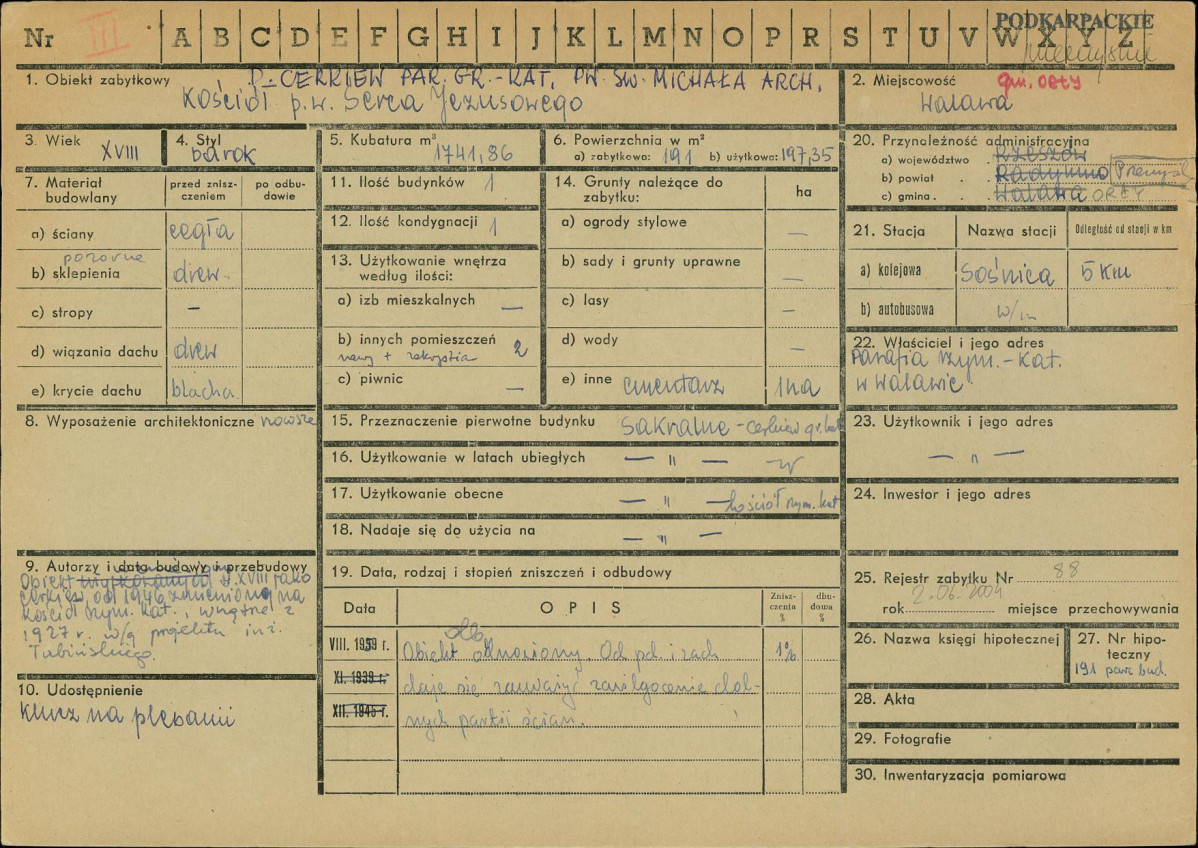 Nr III A B C D E F G H I J K L M N O P R S T U V W X Y Z
PODKARPACKIE
1. Obiekt zabytkowy D. CERKIEW PAR. GR.-KAT. PW. ŚW. MICHAŁA ARCH.
Kościół p.w. Serca Jezusowego
2. Miejscowość gm. ORŁY
Walawa
3. Wiek XVIII
4. Styl barok
5. Kubatura m³ 1741,86
6. Powierzchnia w m²
a) zabytkowa: 191 b) użytkowa: 197,35
7. Materiał budowlany
przed znisz-
czeniem
po odbu-
dowie
a) ściany cegła
pozorne
b) sklepienia drew.
c) stropy –
d) wiązania dachu drew
e) krycie dachu blacha
8. Wyposażenie architektoniczne nowsze
9. Autorzy i data budowy i przebudowy
Obiekt w. XVIII jako
cerkiew, od 1946 zamieniona na
kościół rzym. kat., wnętrze z
1927 r. w/g projektu inż.
Tubińskiego.
10. Udostępnienie
Klucz na plebanii
11. Ilość budynków 1
12. Ilość kondygnacji 1
13. Użytkowanie wnętrza
według ilości:
a) izb mieszkalnych —
b) innych pomieszczeń 2
nawy + zakrystia
c) piwnic —
14. Grunty należące do
zabytku:
ha
a) ogrody stylowe —
b) sady i grunty uprawne —
c) lasy —
d) wody —
e) inne cmentarz 1 ha
15. Przeznaczenie pierwotne budynku Sakralne - cerkiew gr. kat
16. Użytkowanie w latach ubiegłych — " —
17. Użytkowanie obecne — " — kościół rzym. kat
18. Nadaje się do użycia na — " —
19. Data, rodzaj i stopień zniszczeń i odbudowy
Data
OPIS
Znisz-
czenia
%
dbu-
dowa
%
VIII. 1959 r. Obiekt odnowiony. Od pd. i zach 1%
XI. 1939 r. daje się zauważyć zawilgocenie dol-
XII. 1945 r. nych partii ścian.
20. Przynależność administracyjna
a) województwo Rzeszów
b) powiat Radymno Przemyśl
c) gmina Walawa ORŁY
21. Stacja
Nazwa stacji
Odległość od stacji w km
a) kolejowa Sośnica 5 Km
b) autobusowa w/m
22. Właściciel i jego adres
Parafia rzym.-kat.
w Walawie.
23. Użytkownik i jego adres
— " —
24. Inwestor i jego adres
25. Rejestr zabytku Nr 88
2.06.2004
rok miejsce przechowywania
26. Nazwa księgi hipotecznej
27. Nr hipo-
teczny
191 parc bud.
28. Akta
29. Fotografie
30. Inwentaryzacja pomiarowa